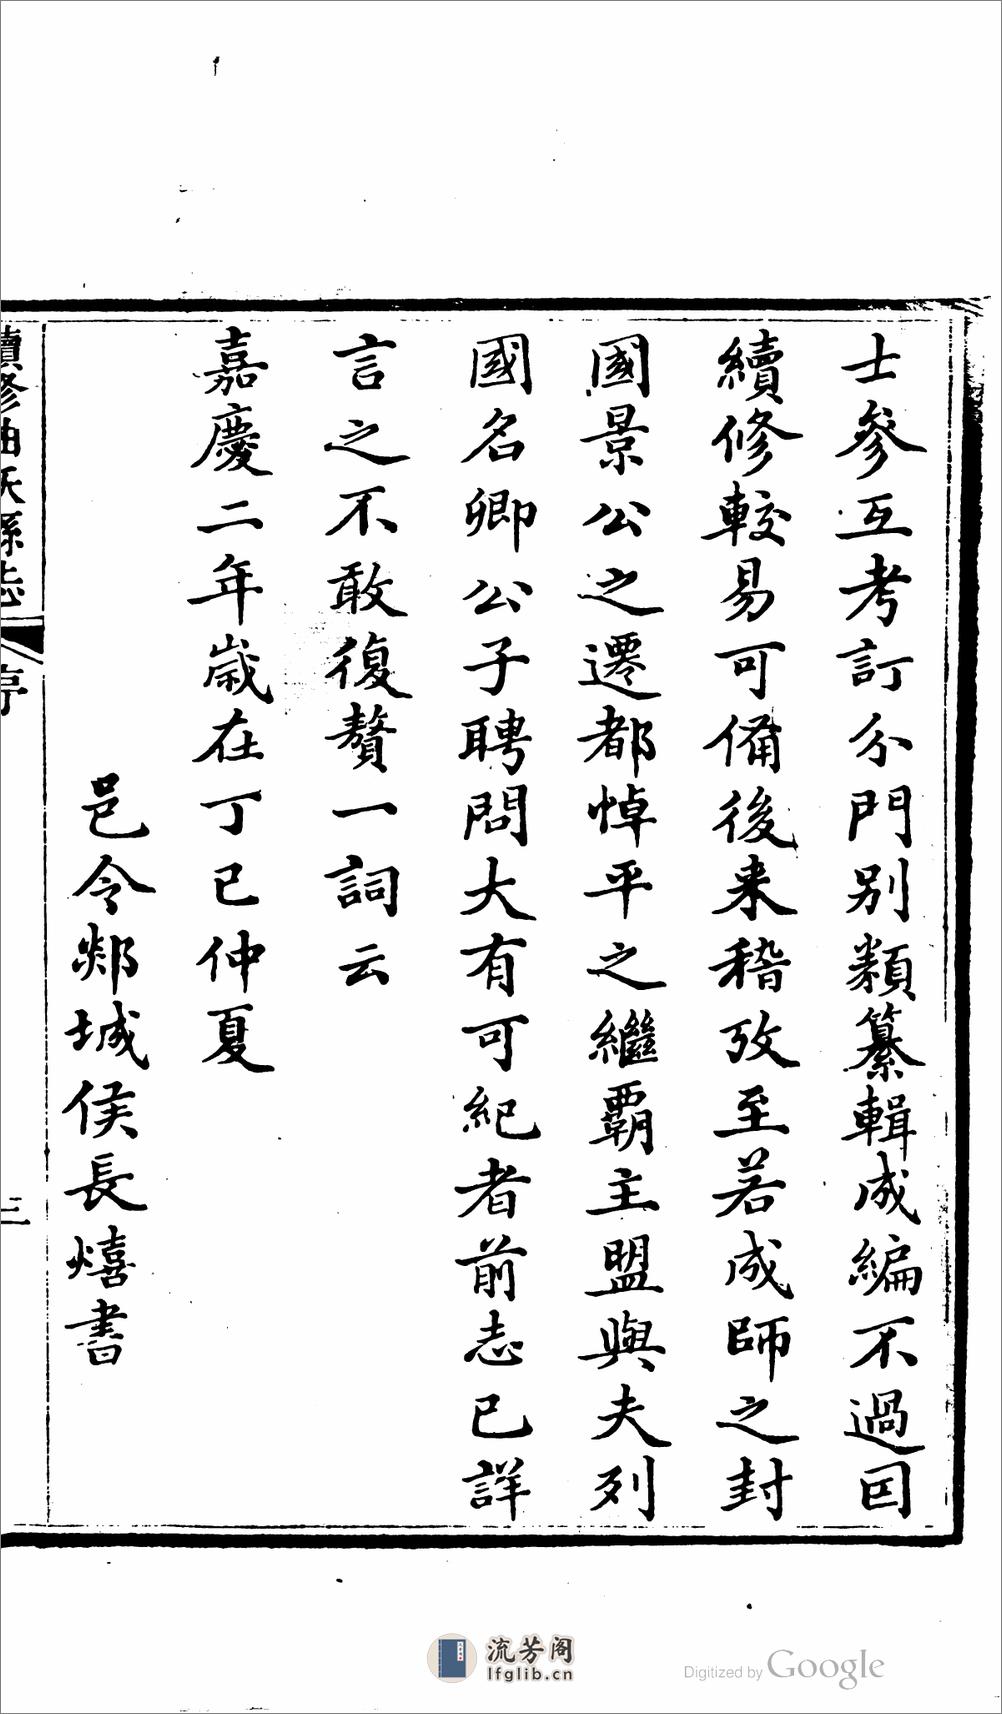 士參互考訂分門別類纂輯成編不過因
續修較易可備後来稽攷至若成師之封
國景公之遷都悼平之繼霸主盟與夫列
國名卿公子聘問大有可紀者前志已詳
言之不敢復贅一詞云
嘉慶二年歲在丁巳仲夏
邑令郯城侯長熺書
續修曲沃縣志
序
三
流芳阁
lfglib.cn
Digitized by Google